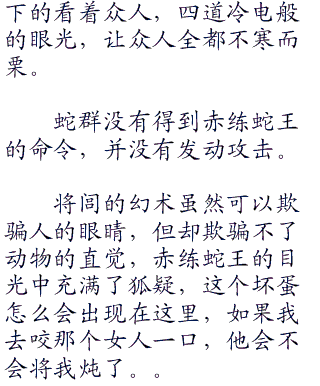 下的看着众人，四道冷电般
的眼光，让众人全都不寒而
栗。
蛇群没有得到赤练蛇王
的命令，并没有发动攻击。
将闾的幻术虽然可以欺
骗人的眼睛，但却欺骗不了
动物的直觉，赤练蛇王的目
光中充满了狐疑，这个坏蛋
怎么会出现在这里，如果我
去咬那个女人一口，他会不
会将我炖了。。